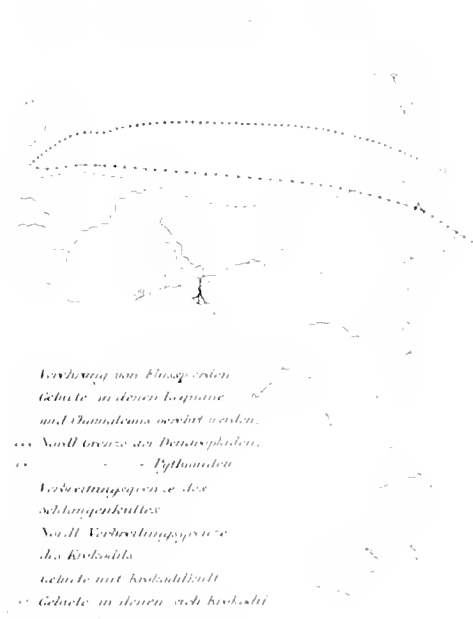 Verehrung von Flusspferden
Gebiete in denen Leguane
und Chamäleons verehrt werden.
Nördl Grenze der
" " Pythoniden
Verbreitungsgrenze des
Schlangenkultes
Nördl Verbreitungsgrenze
des Krokodils
Gebiete mit Krokodilkult
Gebiete in denen sich Krokodil